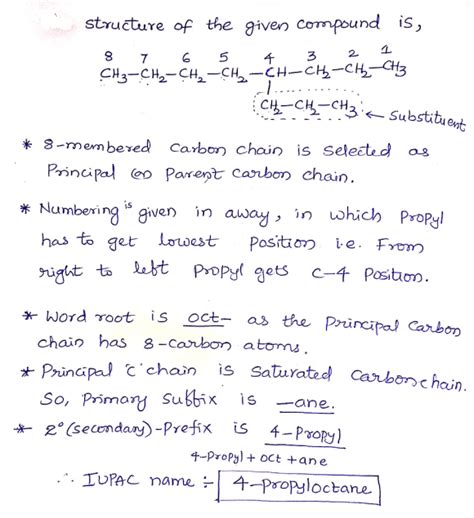 structure of the given compound is,
8 7 6 5 4 3 2 1
CH3-CH2-CH2-CH2-CH-CH2-CH2-CH3
CH2-CH2-CH3 ← Substituent
* 8-membered Carbon chain is selected as
Principal (or) Parent Carbon chain.
* Numbering is given in away, in which Propyl
has to get lowest Position i.e. From
right to left Propyl gets C-4 Position.
* Word root is oct- as the Principal Carbon
chain has 8-Carbon atoms.
* Principal 'C' chain is Saturated Carbon chain.
So, Primary Suffix is -ane.
* 2°(secondary)-Prefix is 4-Propyl
4-Propyl + oct + ane
∴ IUPAC name ÷ 4-propyloctane